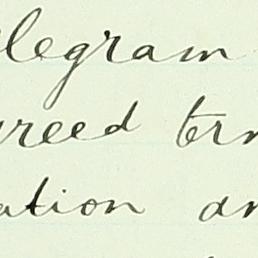 elegram
greed ter
ation an